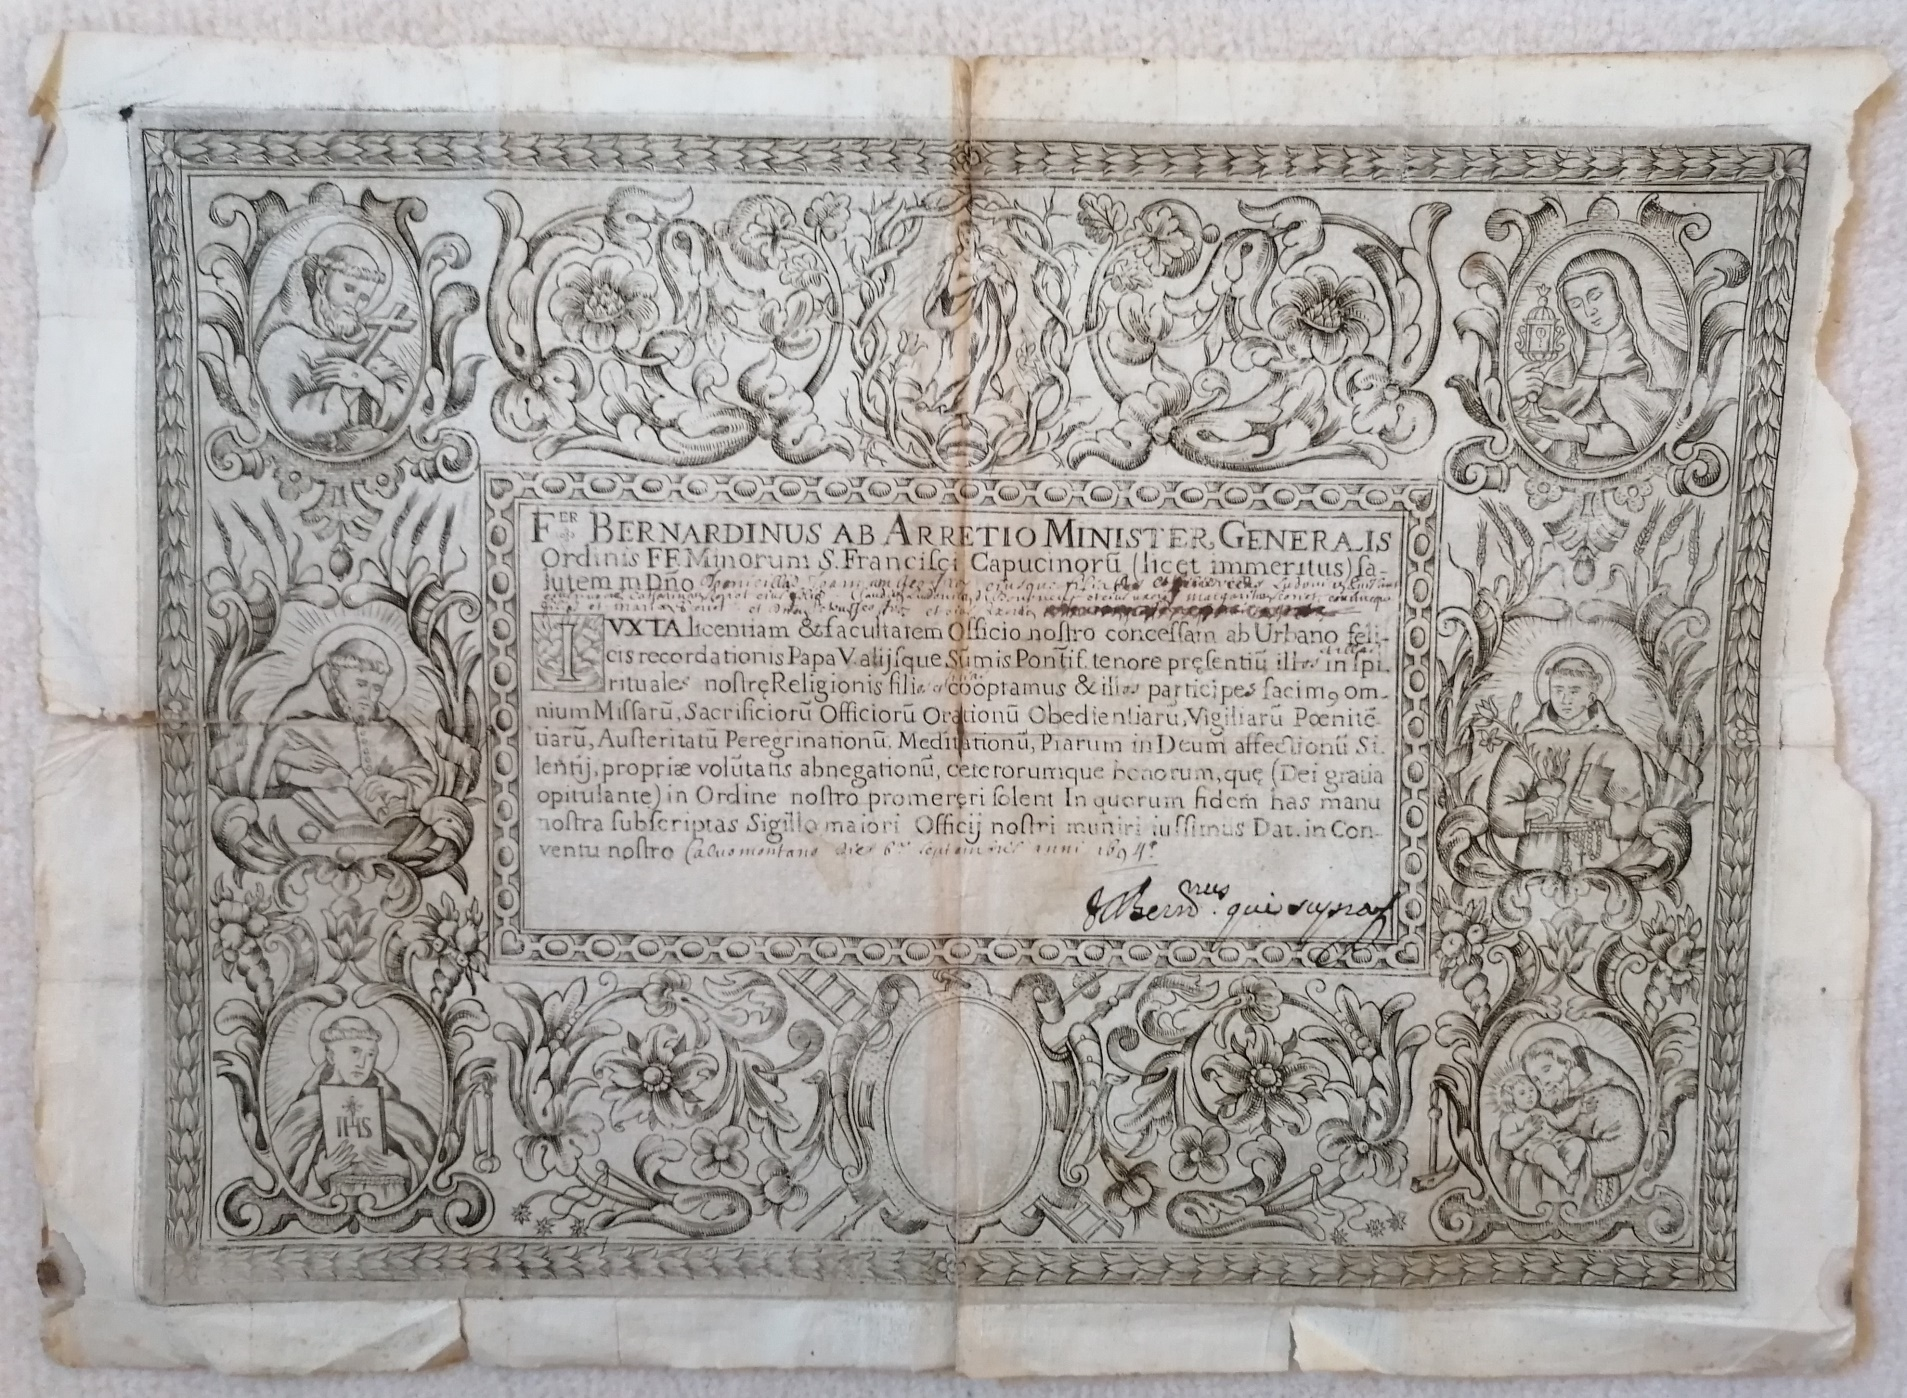 FER BERNARDINUS AB ARRETIO MINISTER GENERALIS
Ordinis FF. Minorum S. Francisci Capucinorũ (licet immeritus) sa-
lutem in Dño
et Maria et
IVXTA licentiam & facultatem Officio nostro concessam ab Urbano feli-
cis recordationis Papa V. alijsque Sũmis Pontif. tenore pręsentiũ illos in spi-
rituales nostrę Religionis filios coòptamus & illos participes facimꝯ om-
nium Missarũ, Sacrificiorũ Officiorũ Orationũ Obedientiarũ, Vigiliarũ Pœnitẽ-
tiarũ, Austeritatũ Peregrinationũ, Meditationũ, Piarum in Deum affectionũ Si-
lentij, propriæ volũtatis abnegationũ, ceterorumque bonorum, quę (Dei gratia
opitulante) in Ordine nostro promereri solent In quorum fidem has manu
nostra subscriptas Sigillo maiori Officij nostri muniri iussimus Dat. in Con-
ventu nostro Calvomontano die 6ª septembris anni 1694º
F Bernᵈ.nus qui supra
IHS